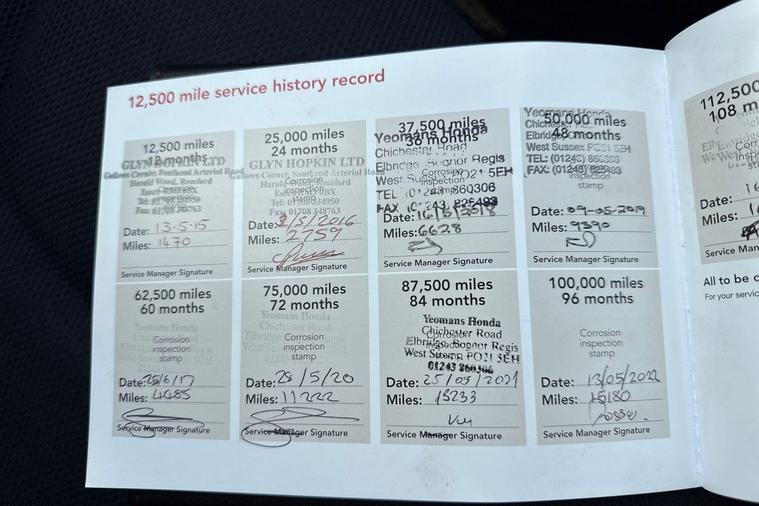 12,500 mile service history record
12,500 miles
12 months
GLYN HOPKIN LTD
Gallows Corner, Southend Arterial Road
Harold Wood, Romford
Corrosion
inspection
stamp
Date: 13-5-15
Miles: 1470
Service Manager Signature
25,000 miles
24 months
GLYN HOPKIN LTD
Gallows Corner, Southend Arterial Road
Harold Wood, Romford
Corrosion
inspection
stamp
Tel: 01708 34950
Fax: 01708 348763
Date: 2/5/2016
Miles: 2759
Service Manager Signature
37,500 miles
36 months
Yeomans Honda
Chichester Road
Elbridge Bognor Regis
West Sussex PO21 5EH
Corrosion
inspection
TEL (01243) 860306
FAX (01243) 825493
Date: 16/5/2018
Miles: 6628
Service Manager Signature
50,000 miles
48 months
Yeomans Honda
Chichester Road
Elbridge
West Sussex PO21 5EH
TEL: (01243) 860306
FAX: (01243) 825493
inspection
stamp
Date: 09-05-2019
Miles: 9390
Service Manager Signature
62,500 miles
60 months
Yeomans Honda
Chichester Road
Corrosion
inspection
stamp
Date: 25/6/17
Miles: 4485
Service Manager Signature
75,000 miles
72 months
Yeomans Honda
Chichester Road
Corrosion
inspection
stamp
Date: 28/5/20
Miles: 11222
Service Manager Signature
87,500 miles
84 months
Yeomans Honda
Chichester Road
Corrosion
Elbridge, Bognor Regis
West Sussex PO21 5EH
01243 860306
Date: 25/05/2021
Miles: 13233
Service Manager Signature
100,000 miles
96 months
Corrosion
inspection
stamp
Date: 13/05/2022
Miles: 15180
Service Manager Signature
112,500
108 m
Date:
Miles:
Service Man
All to be c
For your servic